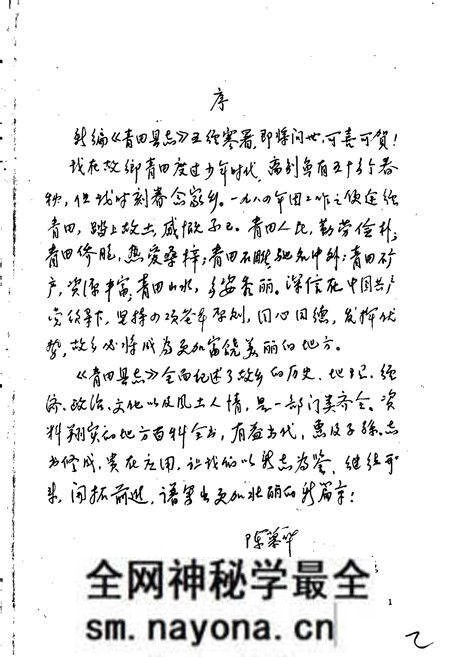 序
新编《青田县志》五经寒暑,即将问世,可喜可贺!
我在故乡青田度过少年时代,离别多有五十多个春
秋,但我时刻眷念家乡。一九八四年因工作之便途经
青田,踏上故土,感慨不已。青田人民,勤劳俭朴;
青田侨胞,热爱桑梓;青田石雕,驰名中外;青田矿
产,资源丰富;青田山水,多姿秀丽。深信在中国共产
党领导下,坚持四项基本原则,同心同德,发挥优
势,故乡必将成为更加富饶美丽的地方。
《青田县志》全面记述了故乡的历史、地理、经
济、政治、文化以及风土人情,是一部门类齐全、资
料翔实的地方百科全书,有益当代,惠及子孙。志
书修成,贵在应用,让我们以新志为鉴,继往开
来,开拓前进,谱写出更加壮丽的新篇章!
陈慕华
1
乙
全网神秘学最全
sm.nayona.cn